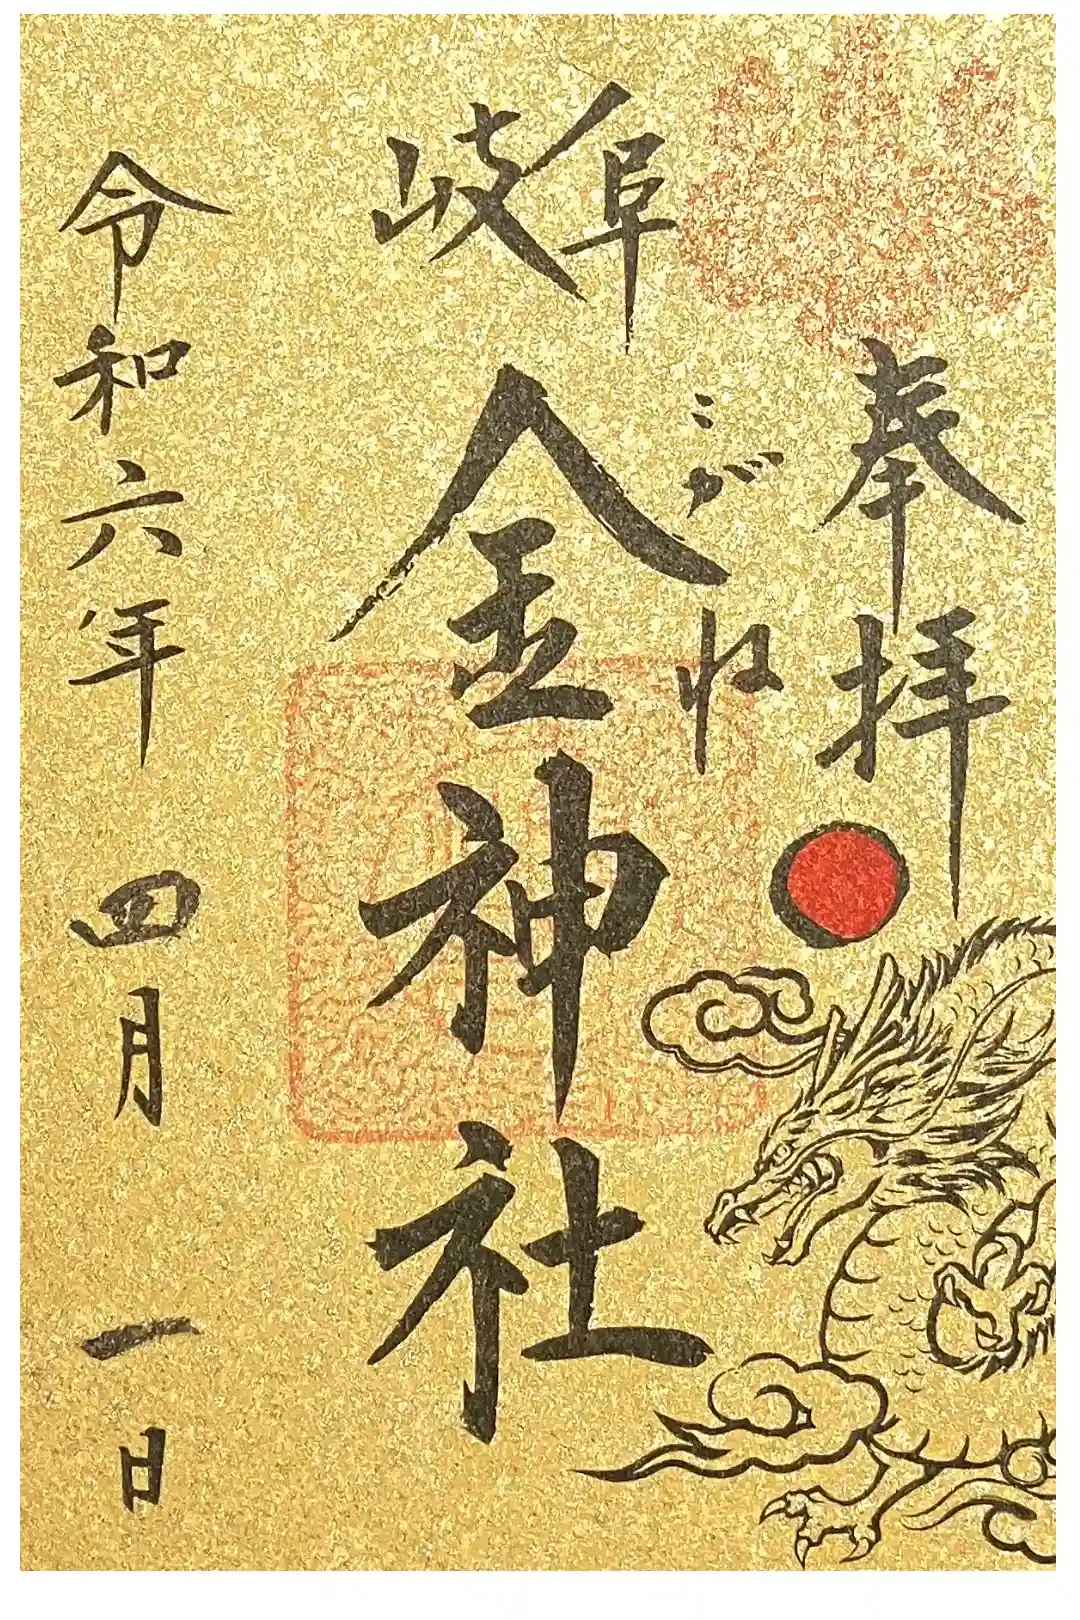 奉拝
岐阜
こがね
金神社
令和六年四月一日